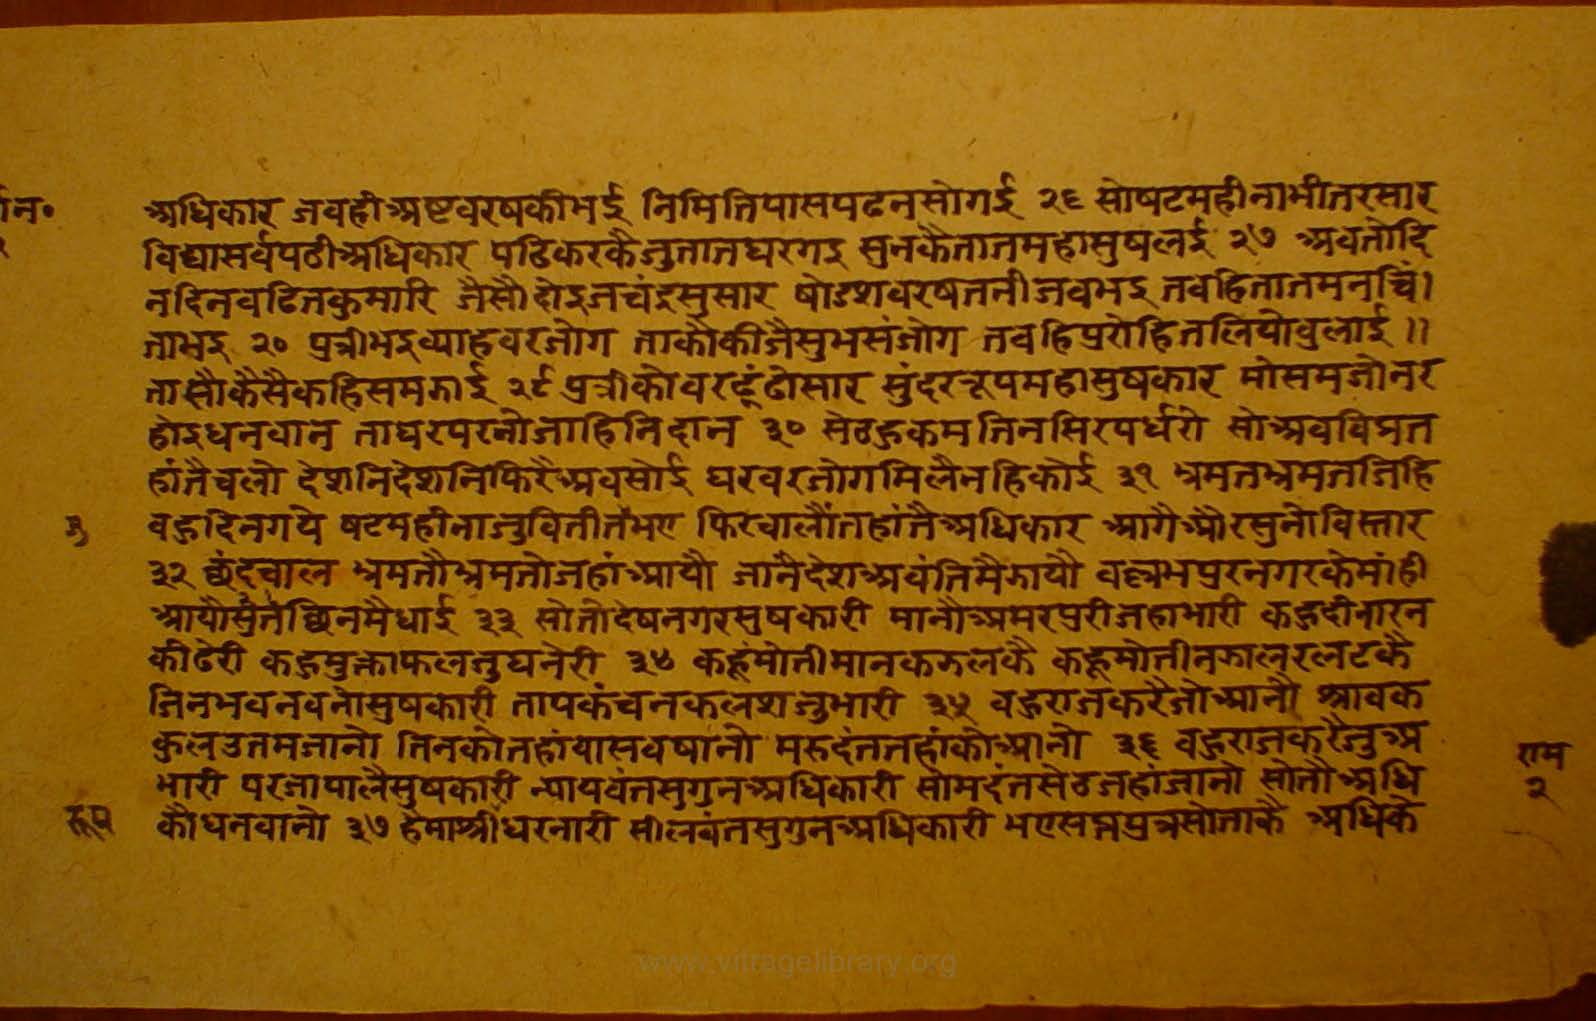 अधिकार जवही अष्टवरषकीभई निमित्तिपासपढनसोगई २६ सोषटमहीनाभीतरसार
विद्यासर्वपठीअधिकार पढिकरकैजुतातघरगइ सुनकैतातमहासुषलई २७ अवतोदि
नदिनवढितकुमारि जैसौदोइजचंद्रसुसार षोडशवरषतनीजवभइ तवहितातमनचिं।
ताभइ २८ पुत्रीभइव्याहवरजोग ताकौकीजैसुभसंजोग तवहिपुरोहितलियोवुलाई ।।
तासौकैसैकहिसमझाई २९ पुत्रीकोवरढूंढोसार सुंदररूपमहासुषकार मोसमजोनर
होइधनवान ताघरपरनोजाहिनिदान ३० सेठहुकमतिनसिरपर्धरो सोअवविप्रत
हांतैचलो देशनिदेशनिफिरैअवसोई घरवरजोगमिलैनहिकोई ३१ भ्रमतभ्रमतजिहि
वहुदिनगये षटमहीनाजुवितीतभए फिरचालौंतहांतैअधिकार आगैऔरसुनोविस्तार
३२ छंदचाल भ्रमतौभ्रमतोजहांआयौ जानैदेशअवंतिमैझायौ वल्लभपुरनगरकेमांही
आयौसुतछिनमैधाई ३३ सोतोदेषनगरसुषकारी मानौअमरपुरीजहाभारी कहुदीनारन
कीढेरी कहुमुक्ताफलजुघनेरी ३४ कहूंमोतीमानकझलकै कहूमोतीनझालरलटकै
जिनभवनवनोसुषकारी तापकंचनकलशजुभारी ३५ वहुराजकरैजोआनौ श्रावक
कुलउतमजानो तिनकोतहांयासवषानो मरुदंततहांकोआनो ३६ वहुराजकरैजुअ
भारी परजापालैसुषकारी न्यायवंतसुगुनअधिकारी सोमदंतसेठजहांजानो सोतौअधि
कौधनवानो ३७ हेमाश्रीधरनारी सीलवंतसुगुनअधिकारी भएसप्तपुत्रसोताकै अधिके
राम
२
www.vitragelibrary.org